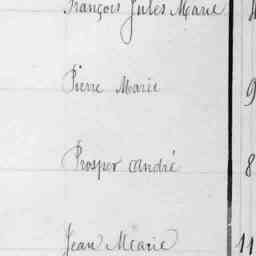 François Jules Marie 4
Pierre Marie 9
Prosper André 8
Jean Marie 11